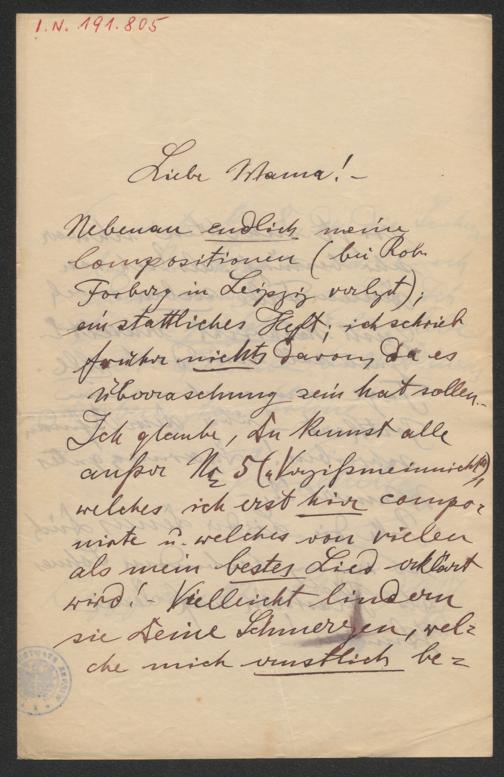 I.N. 191.805
Liebe Mama! –
Nebenan endlich meine
Compositionen (bei Rob.
Forberg in Leipzig verlegt);
ein stattliches Heft; ich schrieb
früher nichts davon, da es
Überraschung sein hat sollen. –
Ich glaube, Du kennst alle
außer Nr 5 („Vergißmeinnicht“)
welches ich erst hier compo-
nirte u. welches von vielen
als mein bestes Lied erklärt
wird! – Vielleicht lindern
sie Deine Schmerzen, wel=
che mich ernstlich be=